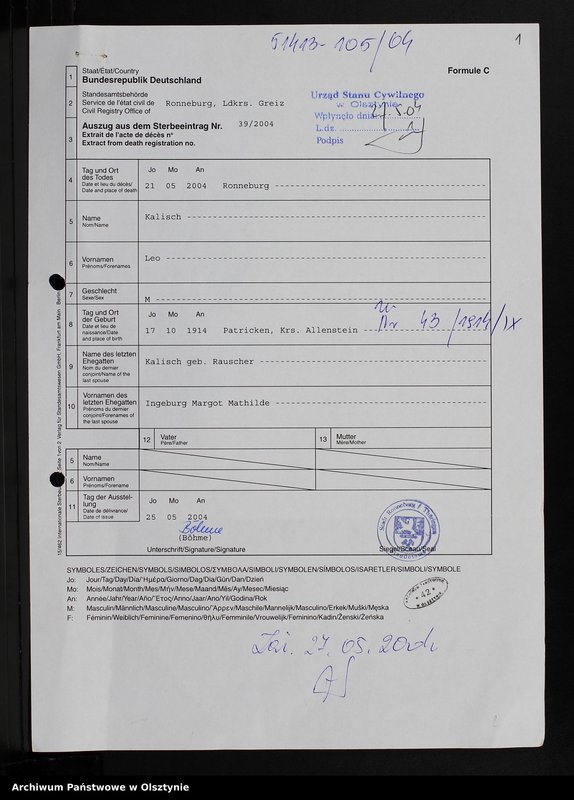 51413-105/04
1
Staat/Etat/Country
Bundesrepublik Deutschland
Formule C
Standesamtsbehörde
Service de l'état civil de
Civil Registry Office of
Ronneburg, Ldkrs. Greiz
Urząd Stanu Cywilnego
w Olsztynie
Wpłynęło dnia
L.dz.
Podpis
Auszug aus dem Sterbeeintrag Nr. 39/2004
Extrait de l'acte de décès n°
Extract from death registration no.
1
2
3
4 Tag und Ort
des Todes
Date et lieu du décès/
Date and place of death
Jo Mo An
21 05 2004 Ronneburg
5 Name
Nom/Name
Kalisch
6 Vornamen
Prénoms/Forenames
Leo
7 Geschlecht
Sexe/Sex
M
8 Tag und Ort
der Geburt
Date et lieu de
naissance/Date
and place of birth
Jo Mo An
17 10 1914 Patricken, Krs. Allenstein
Nr 43/1914/IX
9 Name des letzten
Ehegatten
Nom du dernier
conjoint/Name of the
last spouse
Kalisch geb. Rauscher
10 Vornamen des
letzten Ehegatten
Prénoms du dernier
conjoint/Forenames of
the last spouse
Ingeburg Margot Mathilde
12 Vater
Père/Father
13 Mutter
Mère/Mother
5 Name
Nom/Name
6 Vornamen
Prénoms/Forename
11 Tag der Ausstel-
lung
Date de délivrance/
Date of issue
Jo Mo An
25 05 2004
Böhme
(Böhme)
Unterschrift/Signature/Signature
Siegel/Sceau/Seal
SYMBOLES/ZEICHEN/SYMBOLS/SIMBOLOS/ΣΥΜΒΟΛΑ/SIMBOLI/SYMBOLEN/SÍMBOLOS/ISARETLER/SIMBOLI/SYMBOLE
Jo: Jour/Tag/Day/Día/Ἡμέρα/Giorno/Dag/Dia/Gün/Dan/Dzień
Mo: Mois/Monat/Month/Mes/Μήν/Mese/Maand/Mês/Ay/Mesec/Miesiąc
An: Année/Jahr/Year/Año/Ἔτος/Anno/Jaar/Ano/Yil/Godina/Rok
M: Masculin/Männlich/Masculine/Masculino/Ἄρρεν/Maschile/Mannelijk/Masculino/Erkek/Muški/Męska
F: Féminin/Weiblich/Feminine/Femenino/Θήλυ/Femminile/Vrouwelijk/Feminino/Kadin/Ženski/Żeńska
42
27.05.2004
Archiwum Państwowe w Olsztynie